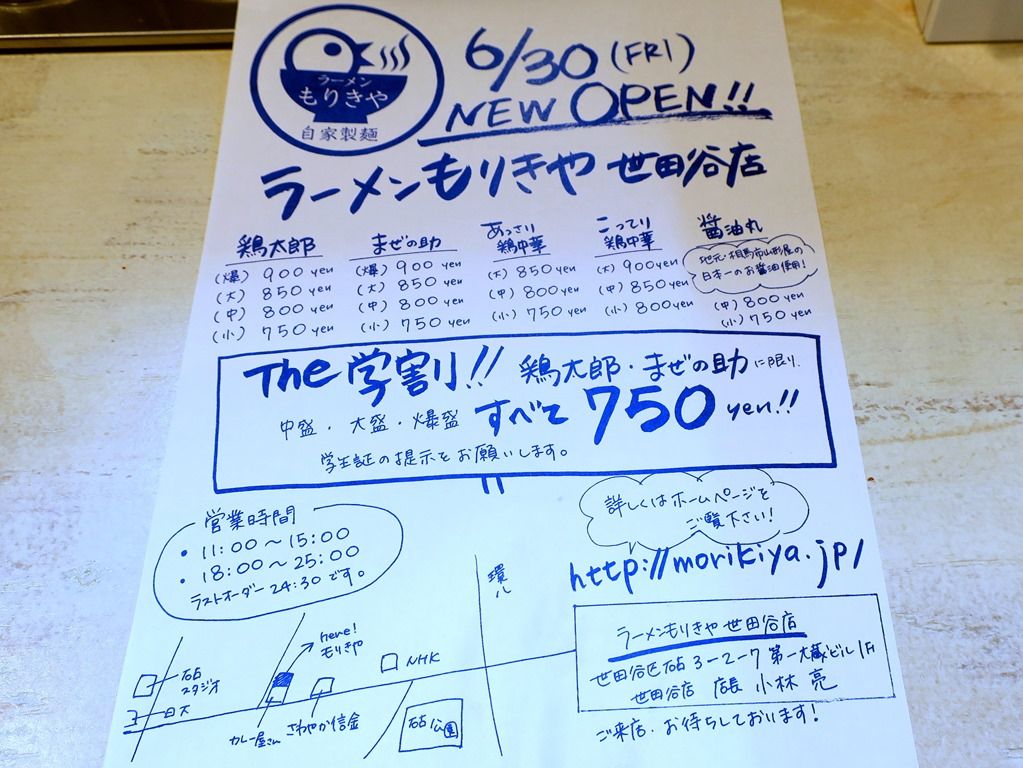 ラーメン
もりきや
自家製麺
6/30(FRI)
NEW OPEN!!
ラーメンもりきや 世田谷店
鶏太郎
(爆) 900yen
(大) 850yen
(中) 800yen
(小) 750yen
まぜの助
(爆) 900yen
(大) 850yen
(中) 800yen
(小) 750yen
あっさり
鶏中華
(大) 850yen
(中) 800yen
(小) 750yen
こってり
鶏中華
(大) 900yen
(中) 850yen
(小) 800yen
醤油丸
地元・相馬市山形屋の
日本一のお醤油使用!
(中) 800yen
(小) 750yen
The 学割!! 鶏太郎・まぜの助に限り、
中盛・大盛・爆盛 すべて750yen!!
学生証の提示をお願いします。
営業時間
・11:00〜15:00
・18:00〜25:00
ラストオーダー24:30です。
詳しくはホームページを
ご覧下さい!
http://morikiya.jp/
環八
here!
もりきや
NHK
砧
スタジオ
日大
カレー屋さん
さわやか信金
砧公園
ラーメンもりきや 世田谷店
世田谷区砧3-2-7 第一大蔵ビル1F
世田谷店 店長 小林 亮
ご来店、お待ちしております!